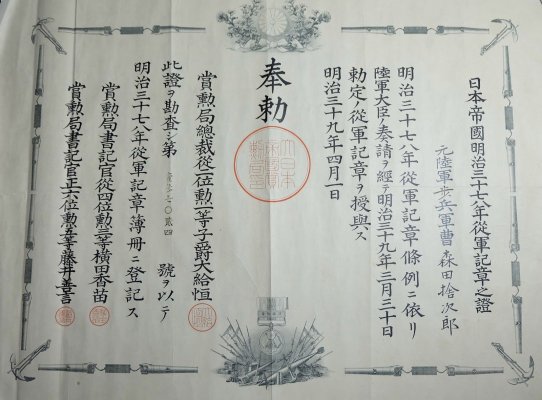 日本帝國明治三十七八年從軍記章之證
元陸軍歩兵軍曹 森田捨次郎
明治三十七八年從軍記章條例ニ依リ
陸軍大臣ノ奏請ヲ經テ明治三十九年三月三十日
勅定ノ從軍記章ヲ授與ス
明治三十九年四月一日
奉勅
賞勲局總裁從二位勲一等子爵大給恒
此證ヲ勘査シ第 號ヲ以テ
明治三十七八年從軍記章簿冊ニ登記ス
賞勲局書記官從四位勲三等横田香苗
賞勲局書記官正六位勲五等藤井善言